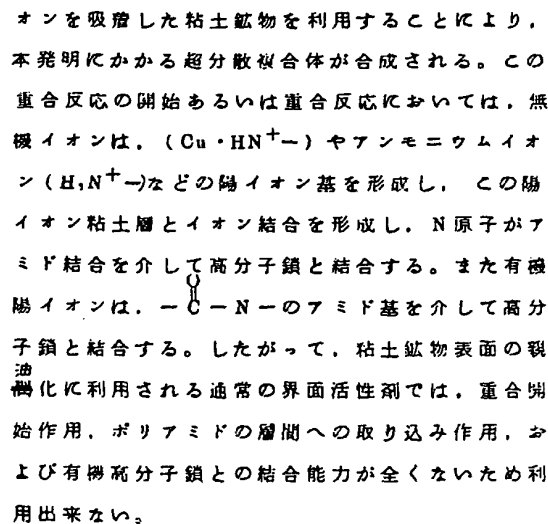 オンを吸着した粘土鉱物を利用することにより，
本発明にかかる超分散複合体が合成される。この
重合反応の開始あるいは重合反応においては，無
機イオンは，（Cu・HN⁺－）やアンモニウムイオ
ン（H₃N⁺－)などの陽イオン基を形成し，この陽
イオン粘土層とイオン結合を形成し，N原子がア
ミド結合を介して高分子鎖と結合する。また有機
O
||
陽イオンは，－C－N－のアミド基を介して高分
子鎖と結合する。したがって，粘土鉱物表面の親
油
化に利用される通常の界面活性剤では，重合開
始作用，ポリアミドの層間への取り込み作用，お
よび有機高分子鎖との結合能力が全くないため利
用出来ない。